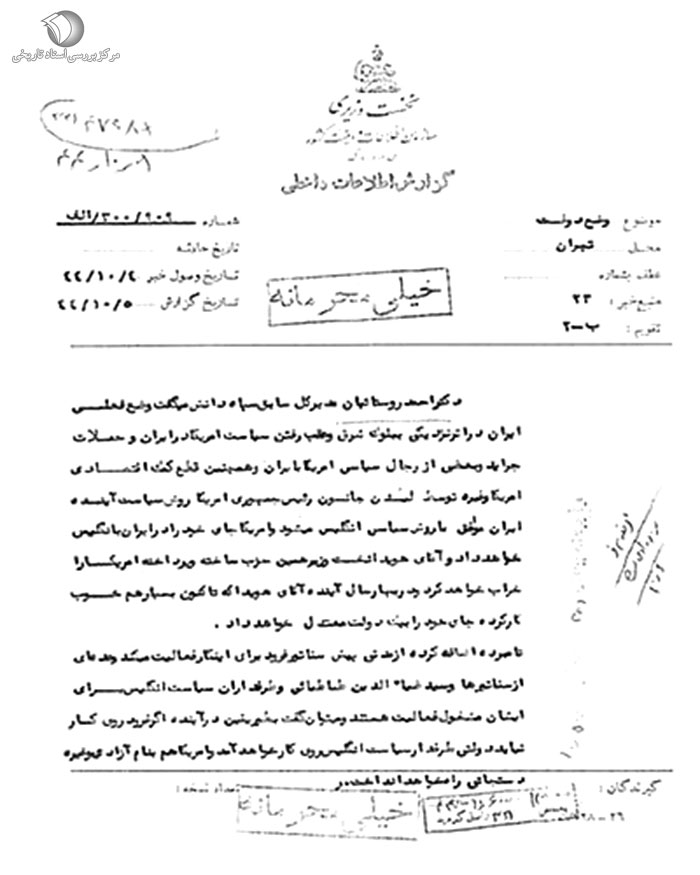 مرکز بررسی اسناد تاریخی
نخست وزیری
سازمان اطلاعات و امنیت کشور
گزارش اطلاعات داخلی
موضوع وضع دولت
محل تهران
عطف بشماره
منبع خبر: ۲۳
تقویم: ب-۲
شماره ۳۰۰/۹۰۹/الف
تاریخ حادثه
تاریخ وصول خبر ۴۴/۱۰/۴
تاریخ گزارش ۴۴/۱۰/۵
خیلی محرمانه
دکتر احمد روستائیان مدیرکل سابق سپاه دانش میگفت وضع فعلی
ایران در اثر نزدیکی ببلوک شرق و عقب رفتن سیاست امریکا در ایران و حملات
جراید و بعضی از رجال سیاسی امریکا با ایران و همچنین قطع کمک اقتصادی
امریکا و غیره توسط لیندن جانسون رئیس جمهوری امریکا روش سیاست آینده
ایران موافق با روش سیاسی انگلیس میشود و امریکا جای خود را در ایران با انگلیس
خواهد داد و آقای هویدا نخست وزیر همین حزب ساخته و پرداخته امریکا را
خراب خواهد کرد و در بهار سال آینده آقای هویدا که تاکنون بسیار هم خوب
کار کرده جای خود را بیک دولت معتدل خواهد داد .
نامبرده اضافه کرده از مدتی پیش سناتور فرود برای اینکار فعالیت میکند و عده‌ای
از سناتورها و سید ضیاء الدین طباطبائی و طرفداران سیاست انگلیس برای
ایشان مشغول فعالیت هستند و میتوان گفت بطور یقین در آینده اگر فرود روی کار
نیاید دولتی طرفدار سیاست انگلیس روی کار خواهد آمد و امریکا هم بنام آزادی و غیره
دستجاتی را براه خواهد انداخت.
گیرندگان:
تعداد نسخه:
خیلی محرمانه